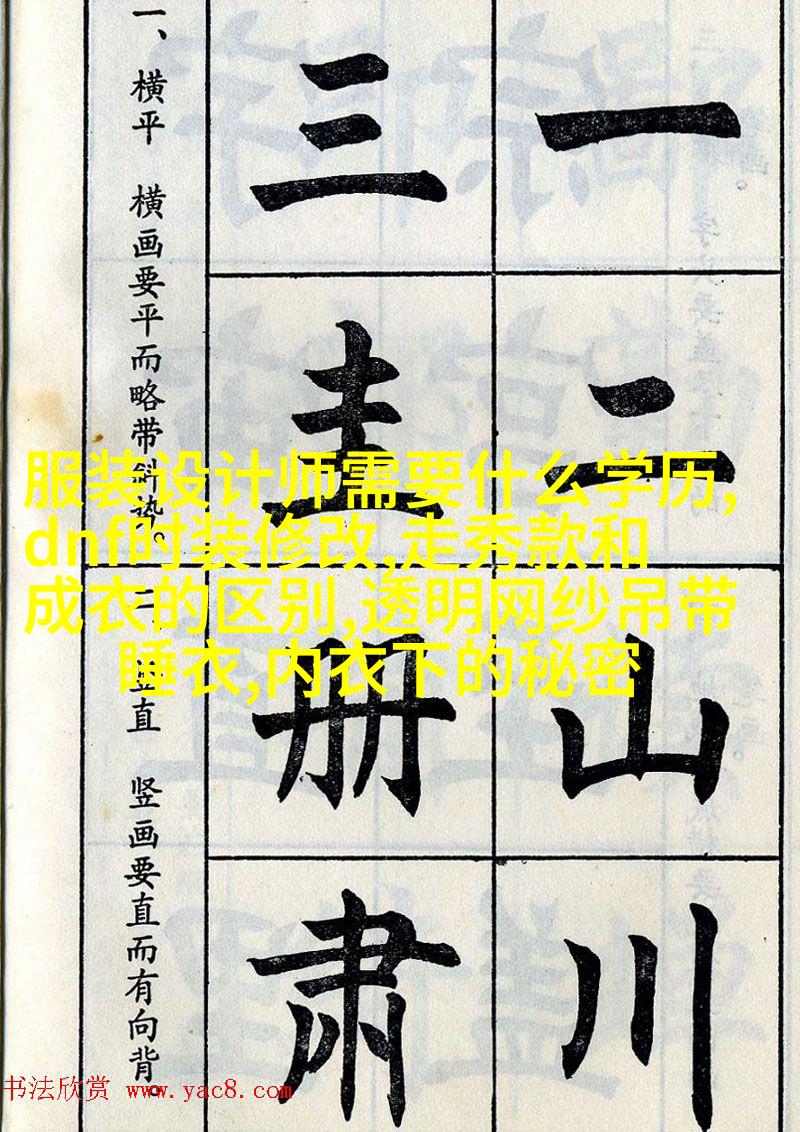 一
二
山
川
三
圭
册
肃
一、横平 横画要平而略带斜势。
二、竖直 竖画要直而有向背。
服装设计师需要什么学历,
dnf时装修改,走秀款和
成衣的区别,透明网纱吊带
睡衣,内衣下的秘密
书法欣赏 www.yac8.com